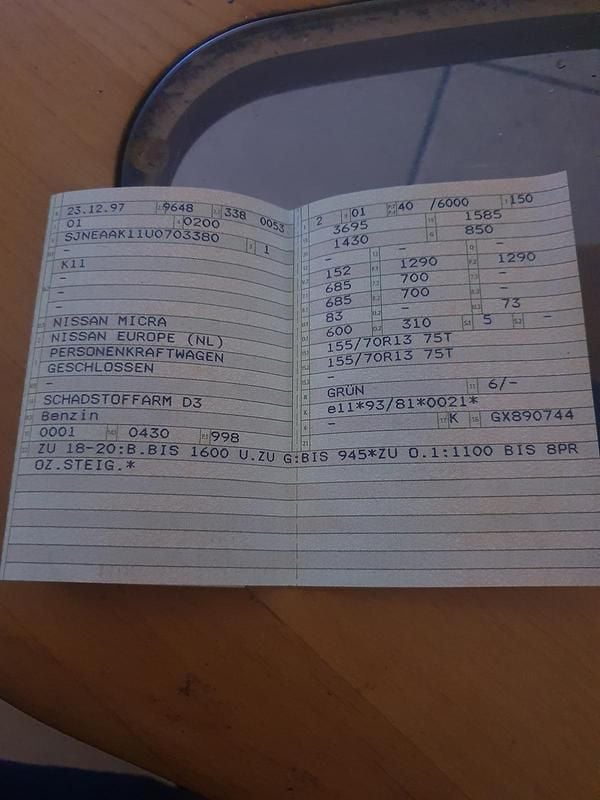 23.12.97 9648 338 0053
01 0200
SJNEAAK11U0703380 1
-
K11
-
-
-
NISSAN MICRA
NISSAN EUROPE (NL)
PERSONENKRAFTWAGEN
GESCHLOSSEN
-
SCHADSTOFFARM D3
Benzin
0001 0430 998
2 01 40 /6000 150
3695 1585
1430 850
- - -
152 1290 1290
685 700 -
685 700 -
83 - 73
600 310 5 -
155/70R13 75T
155/70R13 75T
-
GRÜN 6/-
e11*93/81*0021*
- K GX890744
ZU 18-20:B.BIS 1600 U.ZU G:BIS 945*ZU O.1:1100 BIS 8PR
OZ.STEIG.*